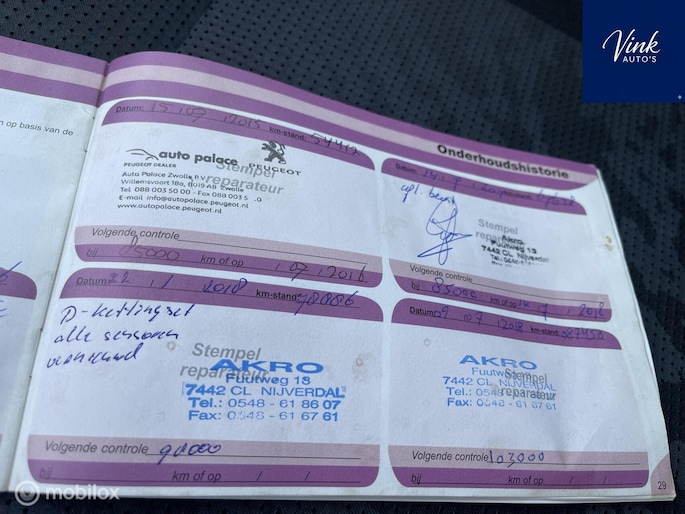 Vink
AUTO'S
n op basis van de
Onderhoudshistorie
Datum: 15 107 12015 km-stand: 54412
auto palace PEUGEOT
PEUGEOT DEALER
Stempel
reparateur
Auto Palace Zwolle B.V.
Willemsvaart 18a, 8019 AB Zwolle
Tel 088 003 50 00 - Fax 088 003 5
E-mail info@autopalace.peugeot.nl
www.autopalace.peugeot.nl
Volgende controle
bij 85000 km of op 1 07 1 2016
Datum:
Stempel
reparateur
Akro
Fuutweg 13
7442 CL Nijverdal
Volgende controle
bij 85000 km of op 7 1 2016
Datum: 1 / 2018 km-stand:
D-kettingset
alle sensoren
vernieuwd
Stempel
reparateur
AKRO
Fuutweg 13
7442 CL NIJVERDAL
Tel.: 0548 - 61 86 07
Fax: 0548 - 61 67 61
Volgende controle 90000
bij km of op / /
Datum: 9 107 12018 km-stand: 087458
AKRO
Stempel
reparateur
Fuutweg 13
7442 CL NIJVERDAL
Tel.: 0548 - 61 86 07
Fax: 0548 - 61 67 61
Volgende controle 103000
bij km of op / /
29
mobilox